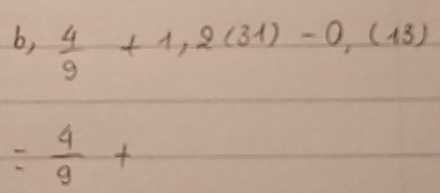 b, 4/9 + 1,2(31) - 0,(13)
= 4/9 +